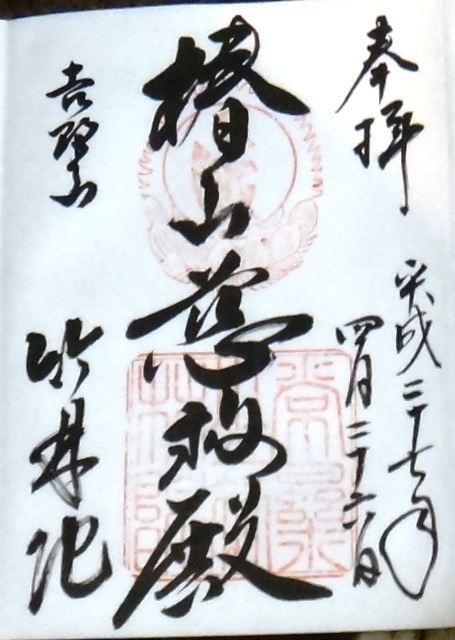 奉拝
平成二十七年
四月二十六日
椿山慈救殿
吉野山
竹林院